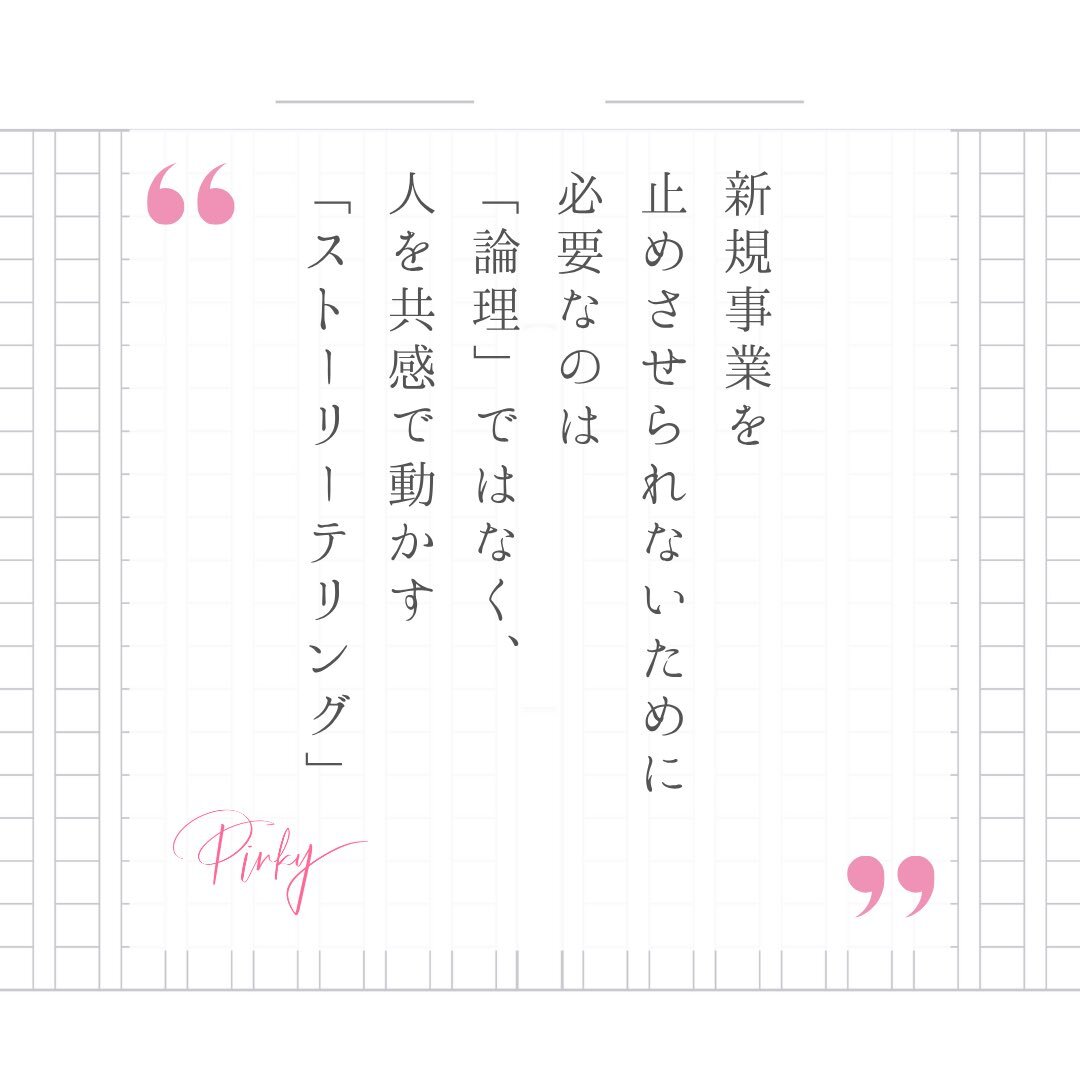 新規事業を
止めさせられないために
必要なのは
「論理」ではなく、
人を共感で動かす
「ストーリーテリング」
Pinky